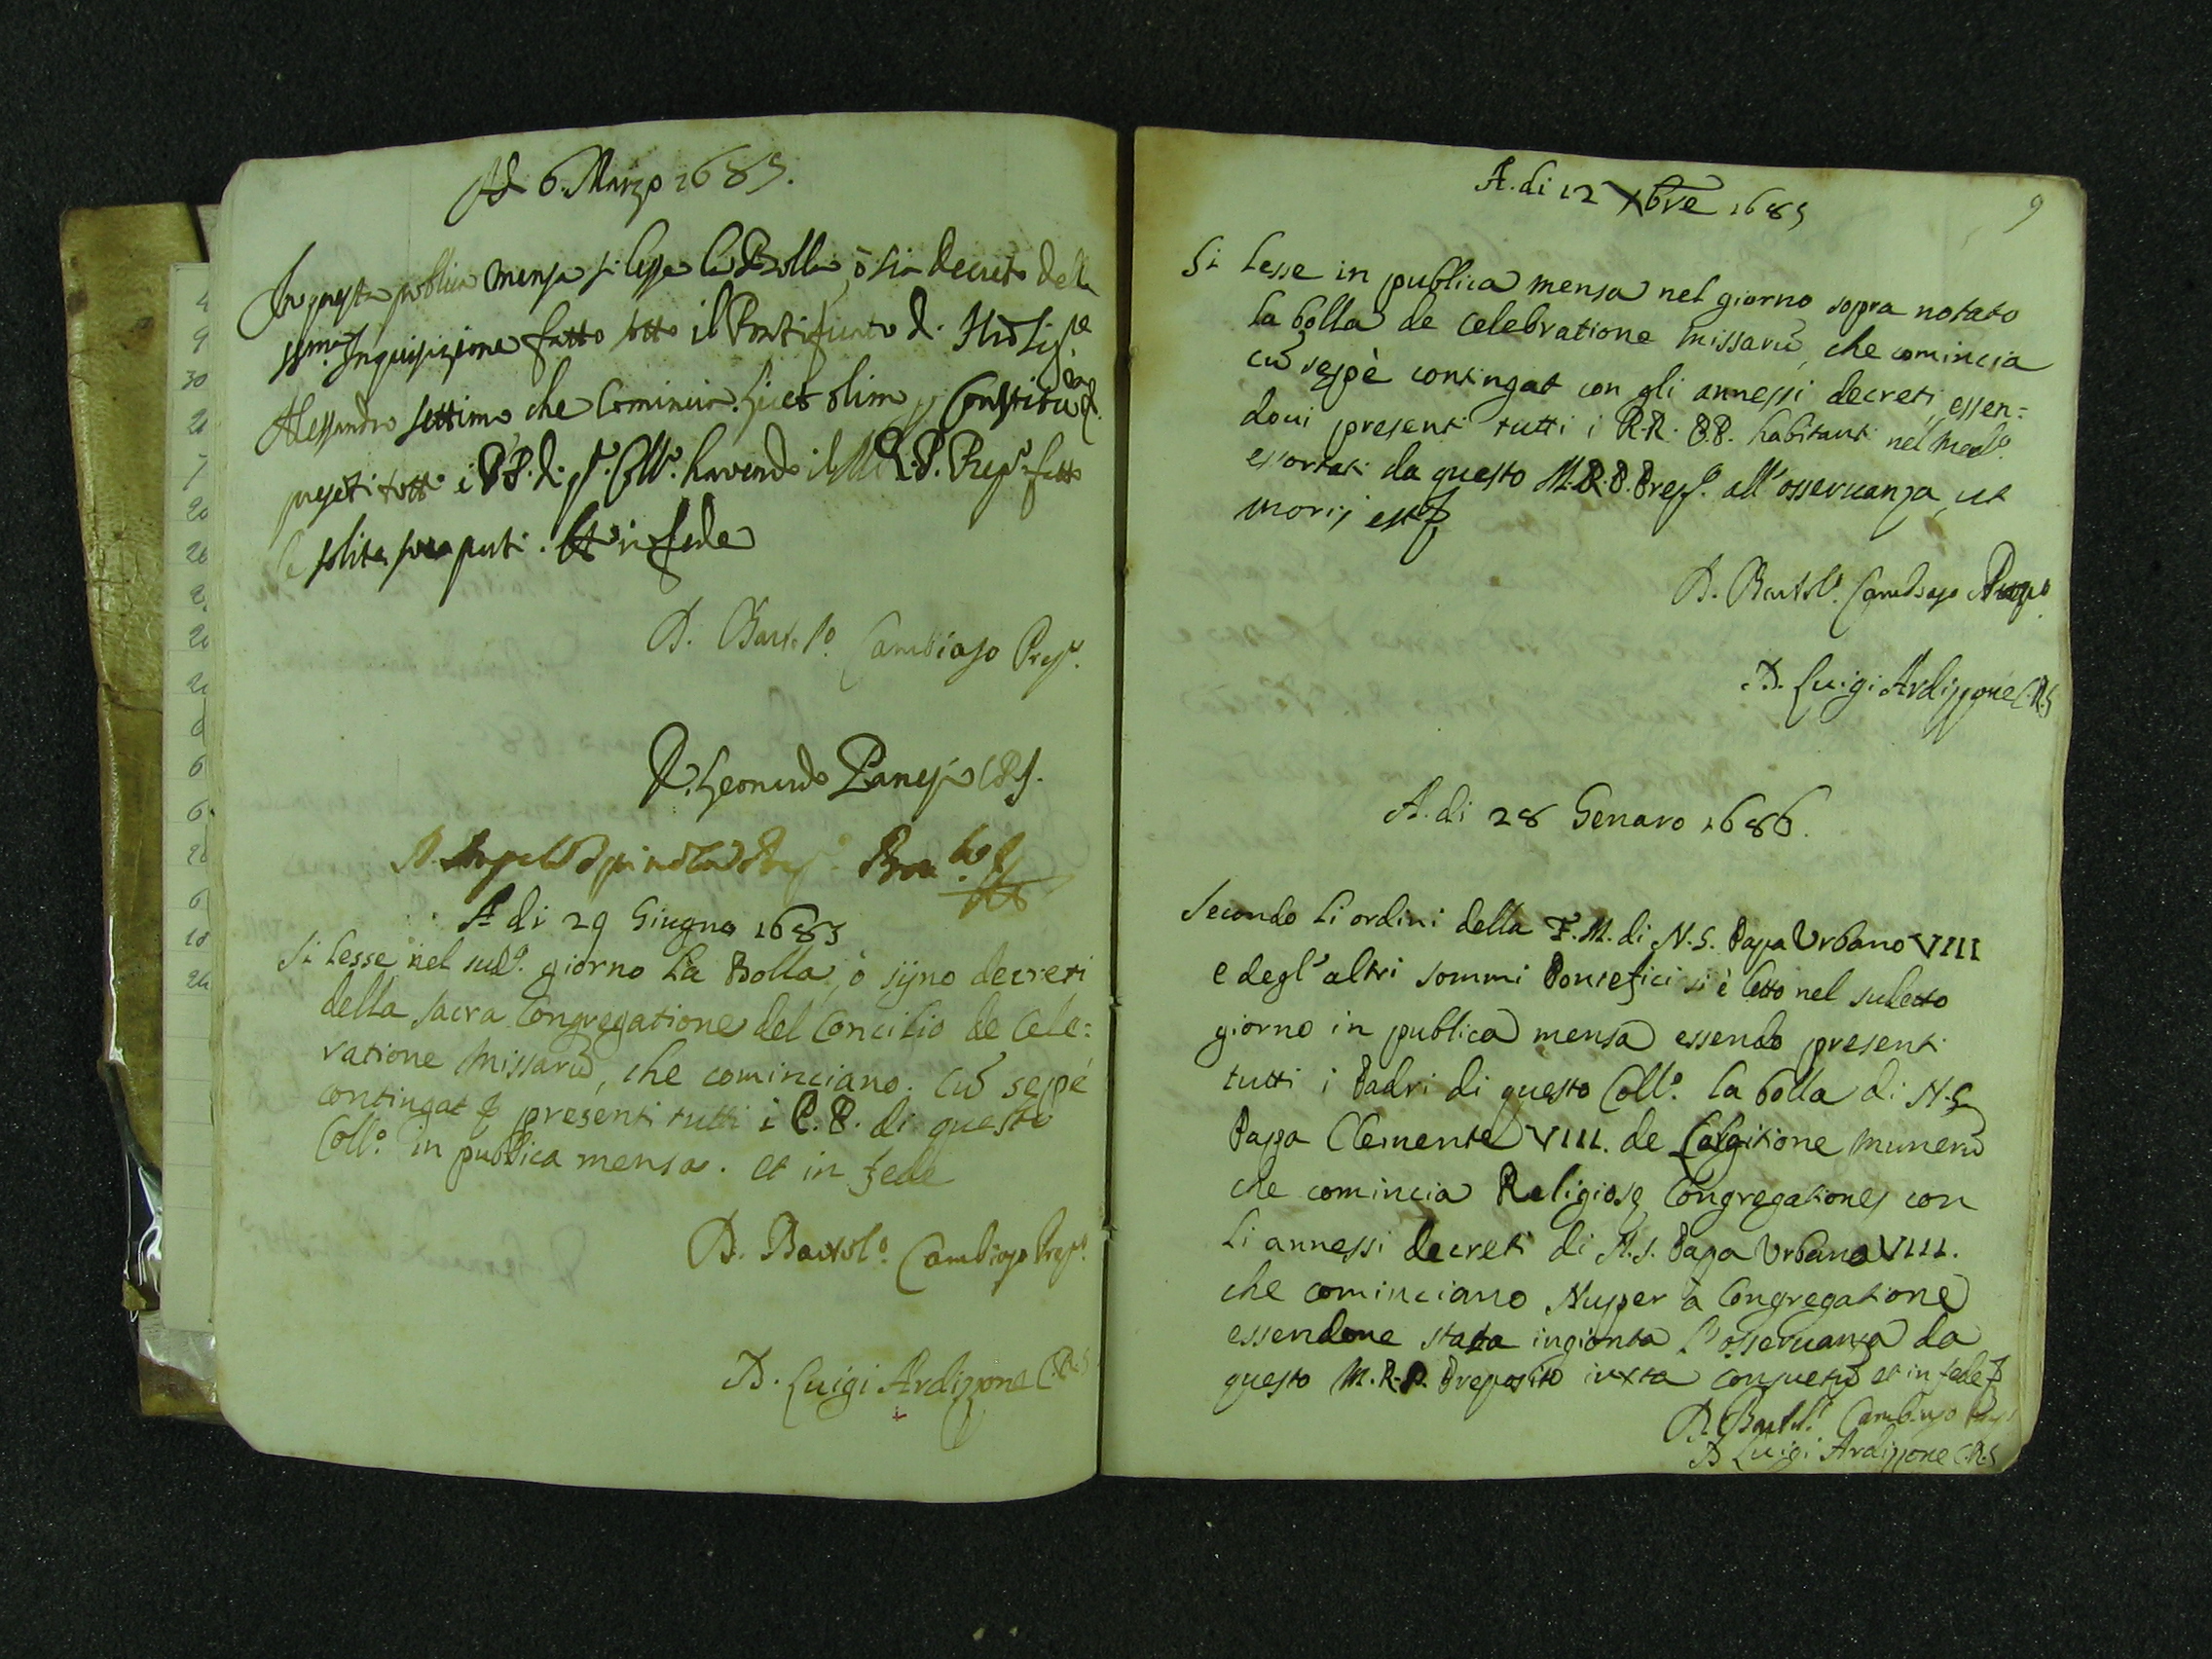 Adì 6. Marzo 1685.
In questa publica mensa si lesse la Bolla, ò sia decreto della
ss.ma Inquisizione fatto sotto il Pontificato di Nro Sig.re
Alessandro settimo che Comincia. Licet olim
preseti tutti i PP. di q.to Coll.o havendo il M. R. P. Prep.to fatto
la solita sua parti. Et in fede
D. Bartol.o Cambiaso Prep.to
D. Leonardo Panesi CRS.
D. Angelo Spinola Prep.
A di 29 Giugno 1685
Si lesse nel sud.o giorno la Bolla, ò sijno decreti
della sacra Congregatione del Concilio de Cele:
ratione Missarū, che cominciano. Cū sepé
contingat & presenti tutti i P.P. di questo
Coll.o in publica mensa. et in fede
D. Bartol.o Cambiaso Prep.to
D. Luigi Ardizzone C.R.S
9
A. di 12 Xbre 1685
Si lesse in publica mensa nel giorno sopra notato
la bolla de celebratione missarū, che comincia
cū sepè contingat con gli annessi decreti, essen:
doui presenti tutti i R.R. P.P. habitanti nel med.o
essortati da questo M.R.P. Prep.o all'osseruanza, ut
moris est &
D. Bartol.o Cambiaso Prepo
D. Luigi Ardizzone C.R.S
A. di 28 Genaro 1686.
Secondo li ordini della F.M. di N.S. Papa Urbano VIII
e degl'altri sommi Pontefici si è letto nel sudetto
giorno in publica mensa essendo presenti
tutti i Padri di questo Coll.o la bolla di N.S
Papa Clemente VIII. de Largitione munerū
che comincia Religiosę Congregationes con
li annessi decreti di N.S. Papa Urbano VIII.
che cominciano Nuper à Congregatione
essendone stata ingionta l'osseruanza da
questo M.R.P. Preposito iuxta consuetū et in fede &
D. Bartol.o Cambiaso Prep
D Luigi Ardizzone C.R.S